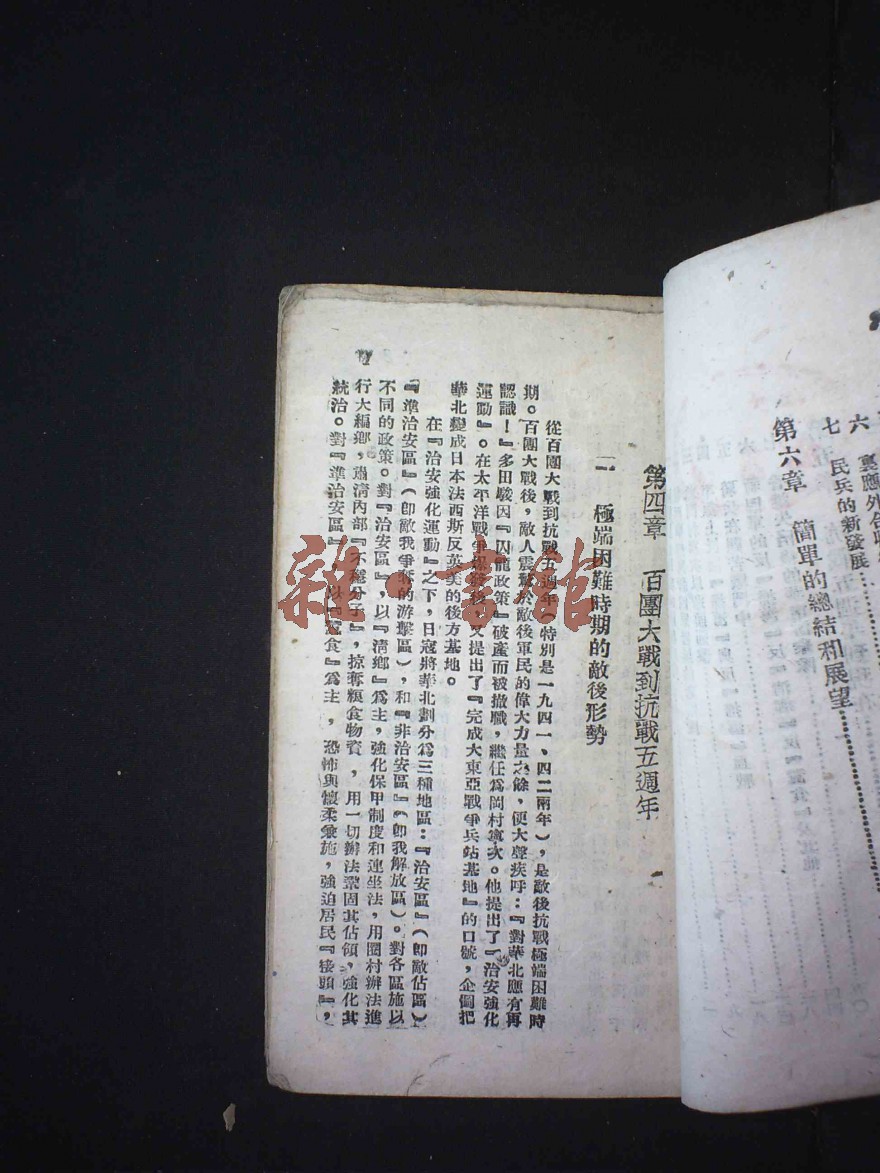 六　裏應外合
七　民兵的新發展…
第六章　簡單的總結和展望
第四章　百團大戰到抗戰五週年
一　極端困難時期的敵後形勢
從百團大戰到抗戰五週年（特別是一九四一、四二兩年），是敵後抗戰極端困難時
期。百團大戰後，敵人震驚於敵後軍民的偉大力量之餘，便大聲疾呼：『對華北應有再
認識！』多田駿因『囚龍政策』破產而被撤職，繼任為岡村寧次。他提出了『治安強化
運動』。在太平洋戰爭爆發後，又提出了『完成大東亞戰爭兵站基地』的口號，企圖把
華北變成日本法西斯反英美的後方基地。
在『治安強化運動』之下，日寇將華北劃分爲三種地區：『治安區』（卽敵佔區）
『準治安區』（卽敵我爭奪的游擊區），和『非治安區』（卽我解放區）。對各區施以
不同的政策。對『治安區』，以『清鄉』爲主，強化保甲制度和連坐法，用圈村辦法進
行大編鄉，肅清內部『不穩分子』，掠奪糧食物資，用一切辦法鞏固其佔領，強化其
統治。對『準治安區』以『蠶食』爲主，恐怖與懷柔兼施，強迫居民『接頭』，
雜·書館